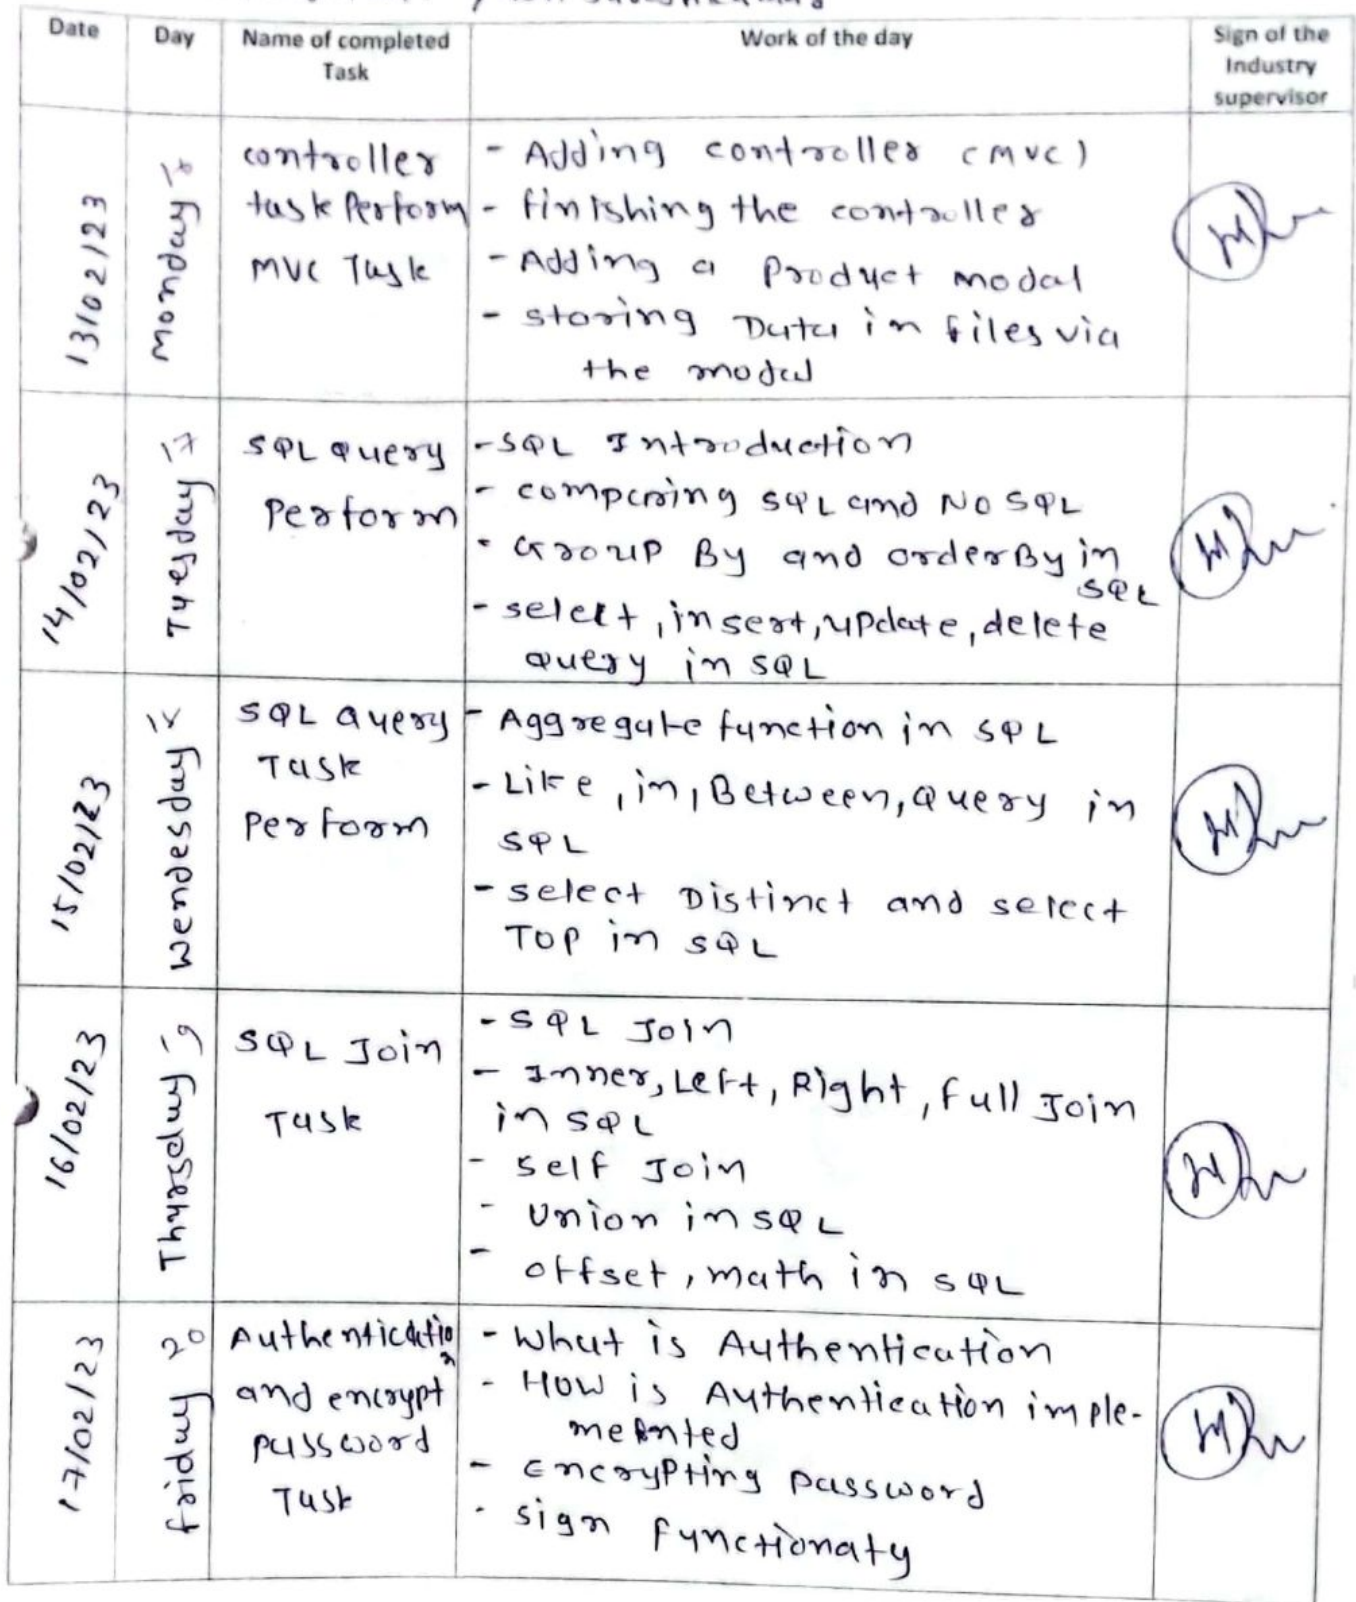 Date Day Name of completed Task Work of the day Sign of the Industry supervisor
13/02/23
Monday
controller
task Perform
MVC Task
- Adding controller (MVC)
- finishing the controller
- Adding a Product modal
- storing Data in files via
the modal
14/02/23
Tuesday 17
SQL Query
Perform
- SQL Introduction
- comparing SQL and NO SQL
- Group By and order By in
SQL
- select, insert, update, delete
query in SQL
15/02/23
Wendesday 18
SQL Query
Task
Perform
- Aggregate function in SQL
- Like, in, Between, Query in
SQL
- select Distinct and select
TOP in SQL
16/02/23
Thursday 19
SQL Join
Task
- SQL Join
- Inner, Left, Right, Full Join
in SQL
- Self Join
- Union in SQL
- offset, math in SQL
17/02/23
friday 20
Authentication
and encrypt
password
Task
- What is Authentication
- How is Authentication imple-
meanted
- Encrypting password
- sign functionaty